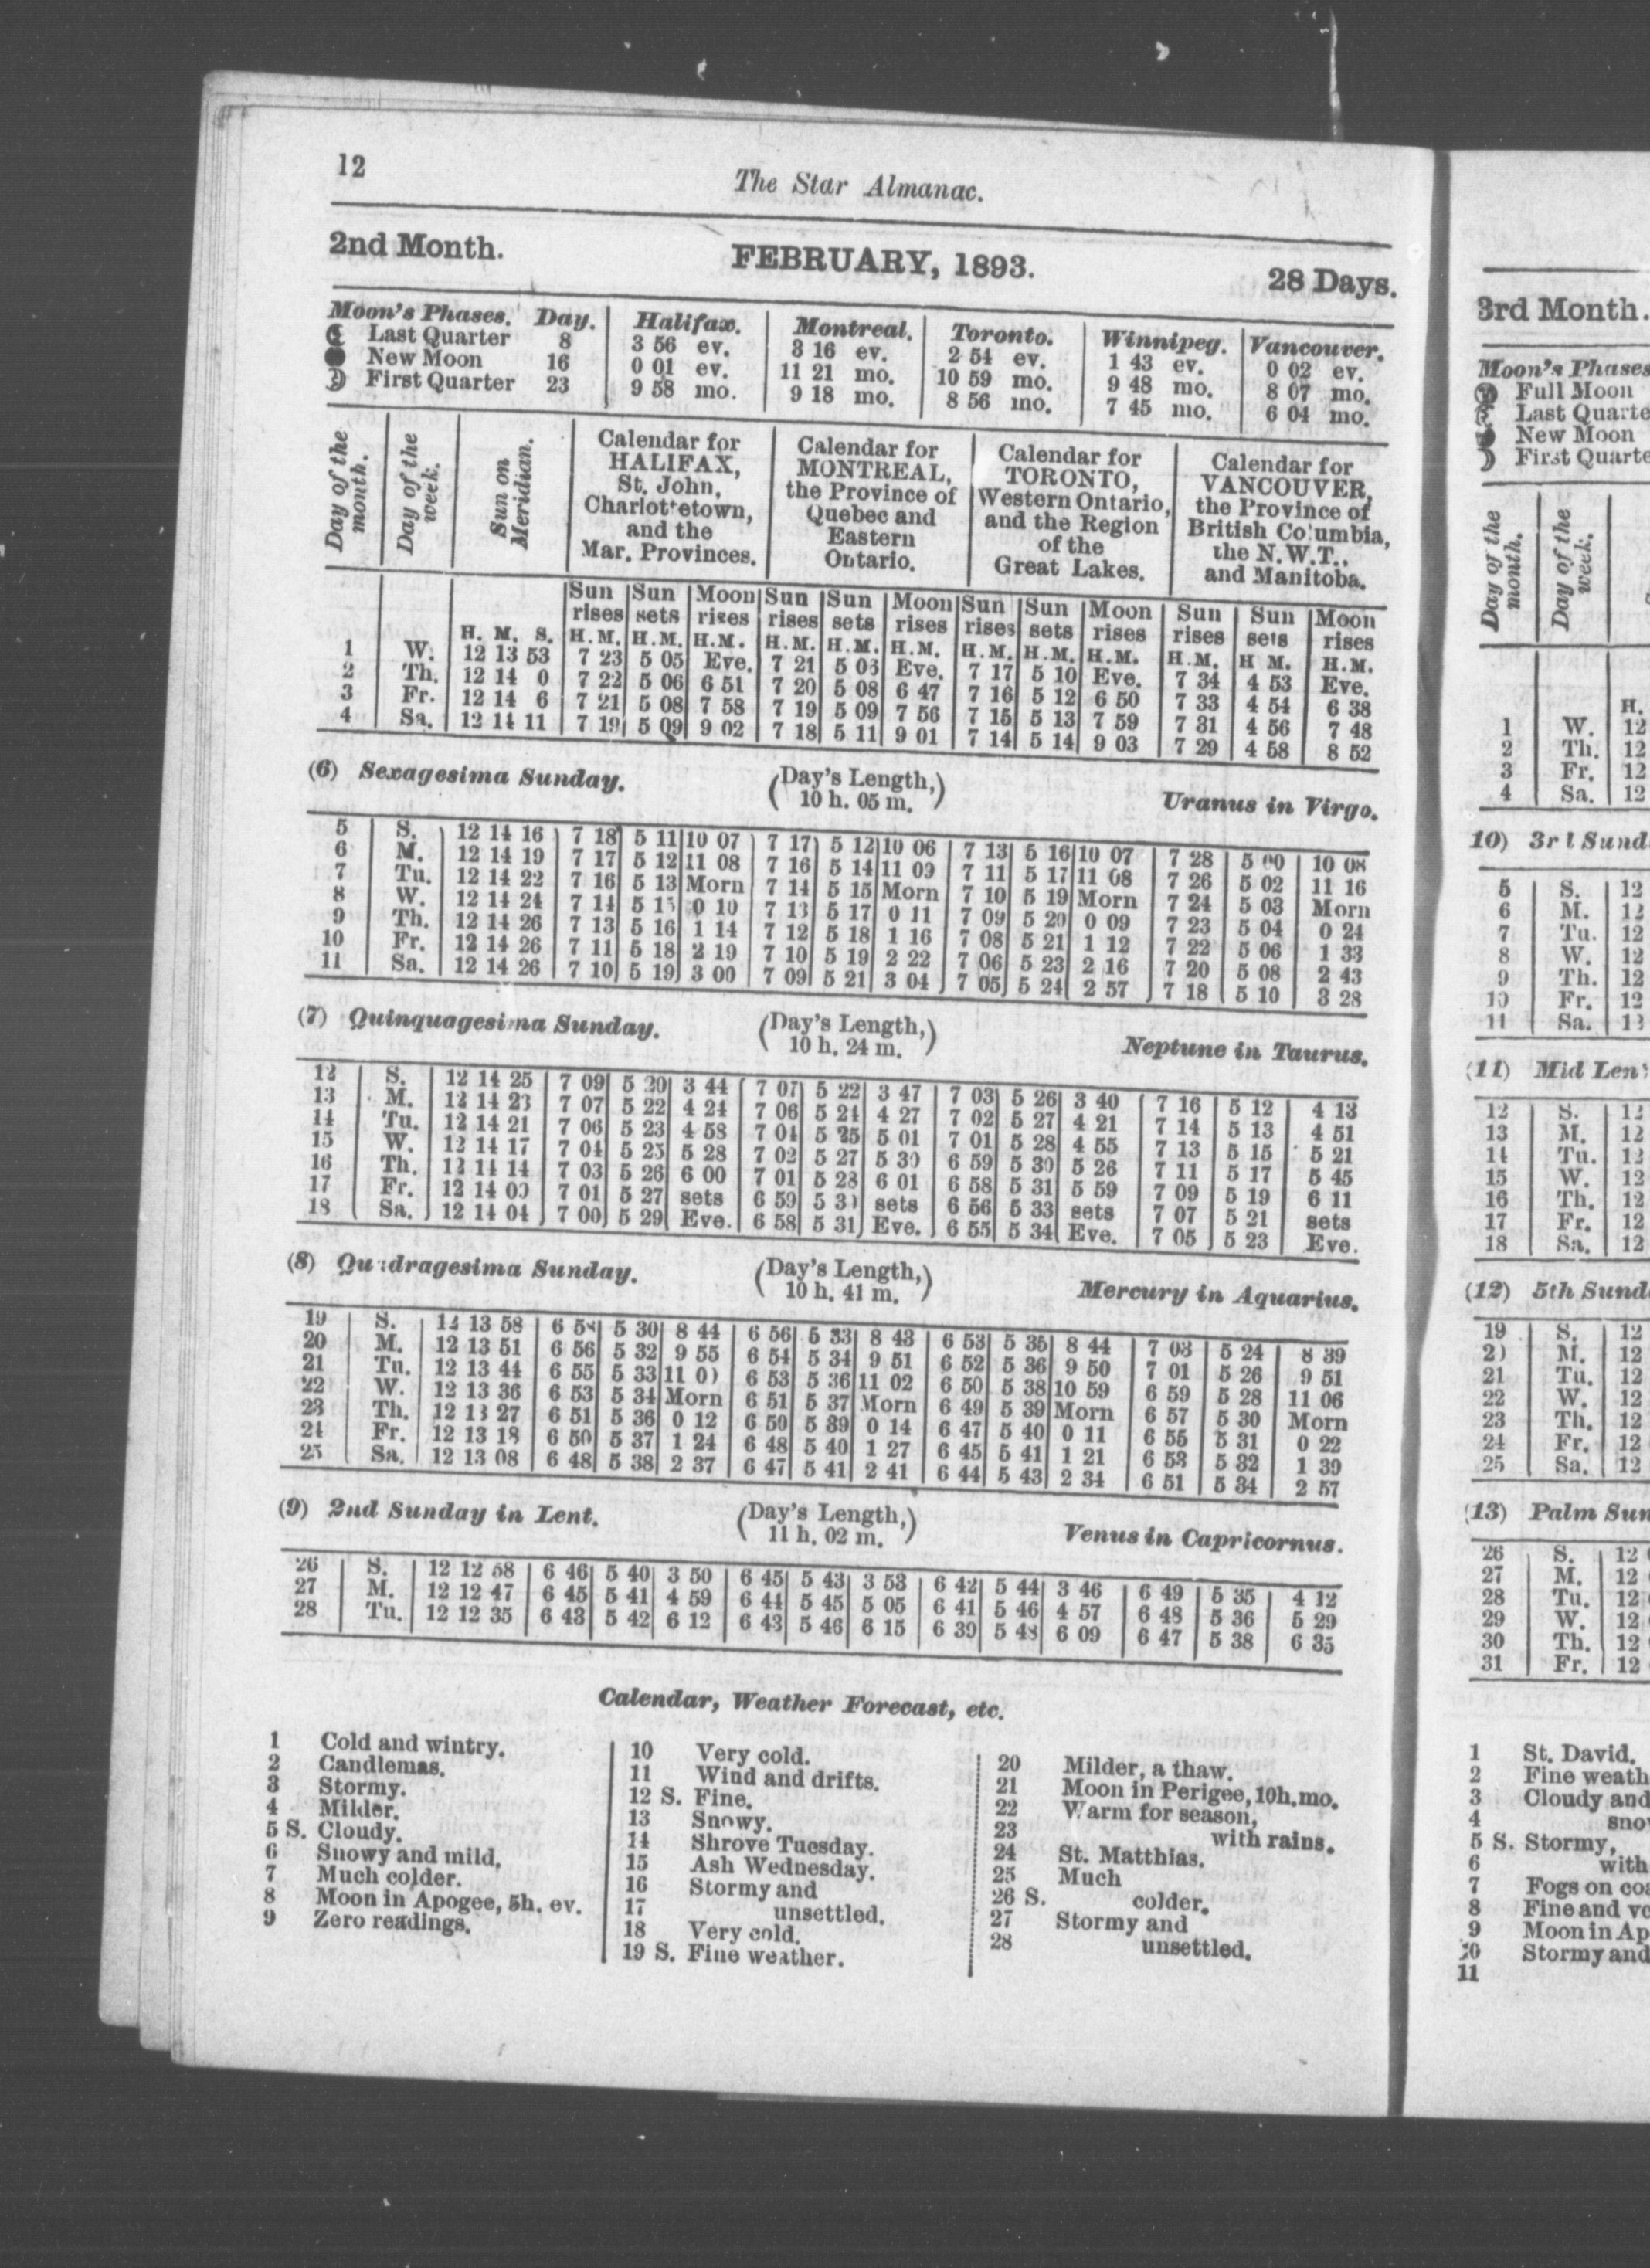 12
The Star Almanac.
2nd Month. FEBRUARY, 1893. 28 Days.
Moon's Phases. Day. Halifax. Montreal. Toronto. Winnipeg. Vancouver.
Last Quarter 8 3 56 ev. 3 16 ev. 2 54 ev. 1 43 ev. 0 02 ev.
New Moon 16 0 01 ev. 11 21 mo. 10 59 mo. 9 48 mo. 8 07 mo.
First Quarter 23 9 58 mo. 9 18 mo. 8 56 mo. 7 45 mo. 6 04 mo.
Day of the month.
Day of the week.
Sun on Meridian.
Calendar for
HALIFAX,
St. John,
Charlottetown,
and the
Mar. Provinces.
Calendar for
MONTREAL,
the Province of
Quebec and
Eastern
Ontario.
Calendar for
TORONTO,
Western Ontario,
and the Region
of the
Great Lakes.
Calendar for
VANCOUVER,
the Province of
British Columbia,
the N.W.T.,
and Manitoba.
Sun Sun Moon Sun Sun Moon Sun Sun Moon Sun Sun Moon
rises sets rises rises sets rises rises sets rises rises sets rises
H. M. S. H.M. H.M. H.M. H.M. H.M. H.M. H.M. H.M. H.M. H.M. H M. H.M.
1 W. 12 13 53 7 23 5 05 Eve. 7 21 5 06 Eve. 7 17 5 10 Eve. 7 34 4 53 Eve.
2 Th. 12 14 0 7 22 5 06 6 51 7 20 5 08 6 47 7 16 5 12 6 50 7 33 4 54 6 38
3 Fr. 12 14 6 7 21 5 08 7 58 7 19 5 09 7 56 7 15 5 13 7 59 7 31 4 56 7 48
4 Sa. 12 14 11 7 19 5 09 9 02 7 18 5 11 9 01 7 14 5 14 9 03 7 29 4 58 8 52
(6) Sexagesima Sunday. (Day's Length, 10 h. 05 m.) Uranus in Virgo.
5 S. 12 14 16 7 18 5 11 10 07 7 17 5 12 10 06 7 13 5 16 10 07 7 28 5 00 10 08
6 M. 12 14 19 7 17 5 12 11 08 7 16 5 14 11 09 7 11 5 17 11 08 7 26 5 02 11 16
7 Tu. 12 14 22 7 16 5 13 Morn 7 14 5 15 Morn 7 10 5 19 Morn 7 24 5 03 Morn
8 W. 12 14 24 7 14 5 15 0 10 7 13 5 17 0 11 7 09 5 20 0 09 7 23 5 04 0 24
9 Th. 12 14 26 7 13 5 16 1 14 7 12 5 18 1 16 7 08 5 21 1 12 7 22 5 06 1 33
10 Fr. 12 14 26 7 11 5 18 2 19 7 10 5 19 2 22 7 06 5 23 2 16 7 20 5 08 2 43
11 Sa. 12 14 26 7 10 5 19 3 00 7 09 5 21 3 04 7 05 5 24 2 57 7 18 5 10 3 28
(7) Quinquagesima Sunday. (Day's Length, 10 h. 24 m.) Neptune in Taurus.
12 S. 12 14 25 7 09 5 20 3 44 7 07 5 22 3 47 7 03 5 26 3 40 7 16 5 12 4 13
13 M. 12 14 23 7 07 5 22 4 24 7 06 5 24 4 27 7 02 5 27 4 21 7 14 5 13 4 51
14 Tu. 12 14 21 7 06 5 23 4 58 7 04 5 25 5 01 7 01 5 28 4 55 7 13 5 15 5 21
15 W. 12 14 17 7 04 5 25 5 28 7 02 5 27 5 30 6 59 5 30 5 26 7 11 5 17 5 45
16 Th. 12 14 14 7 03 5 26 6 00 7 01 5 28 6 01 6 58 5 31 5 59 7 09 5 19 6 11
17 Fr. 12 14 09 7 01 5 27 sets 6 59 5 30 sets 6 56 5 33 sets 7 07 5 21 sets
18 Sa. 12 14 04 7 00 5 29 Eve. 6 58 5 31 Eve. 6 55 5 34 Eve. 7 05 5 23 Eve.
(8) Quadragesima Sunday. (Day's Length, 10 h. 41 m.) Mercury in Aquarius.
19 S. 12 13 58 6 58 5 30 8 44 6 56 5 33 8 43 6 53 5 35 8 44 7 03 5 24 8 39
20 M. 12 13 51 6 56 5 32 9 55 6 54 5 34 9 51 6 52 5 36 9 50 7 01 5 26 9 51
21 Tu. 12 13 44 6 55 5 33 11 00 6 53 5 36 11 02 6 50 5 38 10 59 6 59 5 28 11 06
22 W. 12 13 36 6 53 5 34 Morn 6 51 5 37 Morn 6 49 5 39 Morn 6 57 5 30 Morn
23 Th. 12 13 27 6 51 5 36 0 12 6 50 5 39 0 14 6 47 5 40 0 11 6 55 5 31 0 22
24 Fr. 12 13 18 6 50 5 37 1 24 6 48 5 40 1 27 6 45 5 41 1 21 6 53 5 32 1 39
25 Sa. 12 13 08 6 48 5 38 2 37 6 47 5 41 2 41 6 44 5 43 2 34 6 51 5 34 2 57
(9) 2nd Sunday in Lent. (Day's Length, 11 h. 02 m.) Venus in Capricornus.
26 S. 12 12 58 6 46 5 40 3 50 6 45 5 43 3 53 6 42 5 44 3 46 6 49 5 35 4 12
27 M. 12 12 47 6 45 5 41 4 59 6 44 5 45 5 05 6 41 5 46 4 57 6 48 5 36 5 29
28 Tu. 12 12 35 6 43 5 42 6 12 6 43 5 46 6 15 6 39 5 48 6 09 6 47 5 38 6 35
Calendar, Weather Forecast, etc.
1 Cold and wintry.
2 Candlemas.
3 Stormy.
4 Milder.
5 S. Cloudy.
6 Snowy and mild.
7 Much colder.
8 Moon in Apogee, 5h. ev.
9 Zero readings.
10 Very cold.
11 Wind and drifts.
12 S. Fine.
13 Snowy.
14 Shrove Tuesday.
15 Ash Wednesday.
16 Stormy and
17 unsettled.
18 Very cold.
19 S. Fine weather.
20 Milder, a thaw.
21 Moon in Perigee, 10h. mo.
22 Warm for season,
23 with rains.
24 St. Matthias.
25 Much
26 S. colder.
27 Stormy and
28 unsettled.
3rd Month.
Moon's Phases
Full Moon
Last Quarte
New Moon
First Quarte
Day of the month.
Day of the week.
H.
1 W. 12
2 Th. 12
3 Fr. 12
4 Sa. 12
10) 3rd Sund
5 S. 12
6 M. 12
7 Tu. 12
8 W. 12
9 Th. 12
10 Fr. 12
11 Sa. 12
(11) Mid Len
12 S. 12
13 M. 12
14 Tu. 12
15 W. 12
16 Th. 12
17 Fr. 12
18 Sa. 12
(12) 5th Sund
19 S. 12
20 M. 12
21 Tu. 12
22 W. 12
23 Th. 12
24 Fr. 12
25 Sa. 12
(13) Palm Sun
26 S. 12
27 M. 12
28 Tu. 12
29 W. 12
30 Th. 12
31 Fr. 12
1 St. David.
2 Fine weath
3 Cloudy and
4 snow
5 S. Stormy,
6 with
7 Fogs on coa
8 Fine and
9 Moon in Ap
10 Stormy and
11